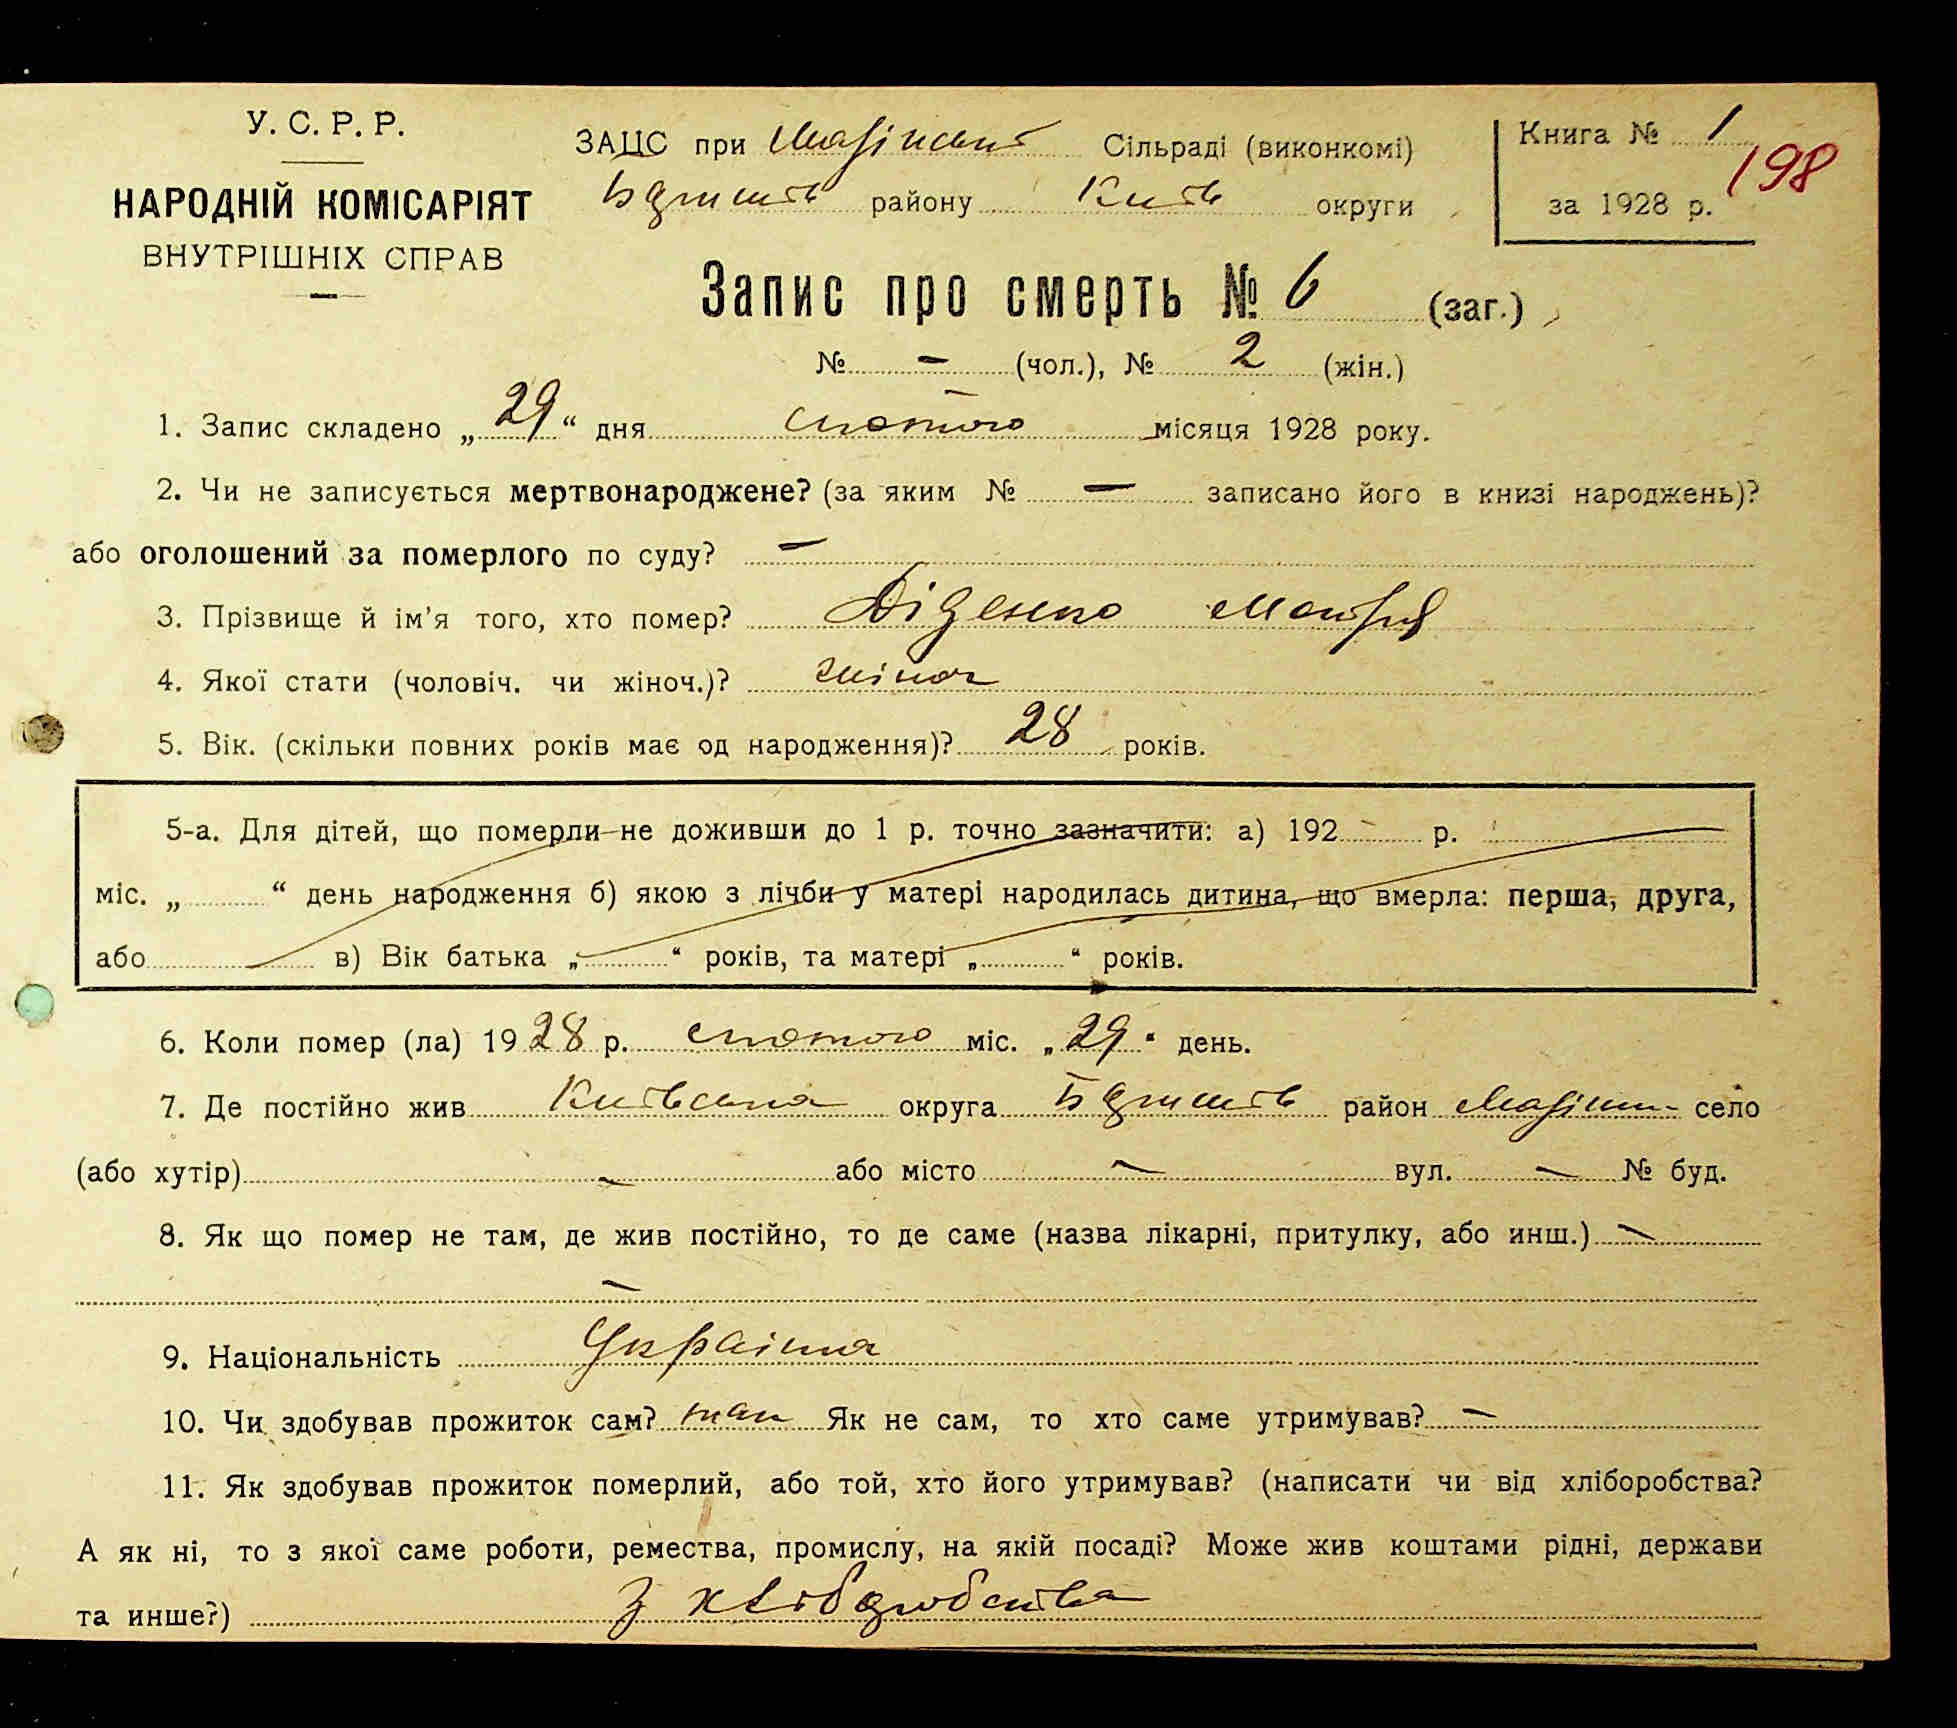 У. С. Р. Р.
НАРОДНІЙ КОМІСАРІЯТ
ВНУТРІШНІХ СПРАВ
ЗАЦС при Сільраді (виконкомі)
району Київ округи
Книга № 1
198
за 1928 р.
Запис про смерть № 6 (заг.)
№ — (чол.), № 2 (жін.)
1. Запис складено „29“ дня лютого місяця 1928 року.
2. Чи не записується мертвонароджене? (за яким № — записано його в книзі народжень)?
або оголошений за померлого по суду? —
3. Прізвище й ім’я того, хто помер? Діденко Мотря
4. Якої стати (чоловіч. чи жіноч.)? жіноч
5. Вік. (скільки повних років має од народження)? 28 років.
5-а. Для дітей, що померли не доживши до 1 р. точно зазначити: а) 192 р.
міс. „ “ день народження б) якою з лічби у матері народилась дитина, що вмерла: перша, друга,
або в) Вік батька „ “ років, та матері „ “ років.
6. Коли помер (ла) 1928 р. лютого міс. „29“ день.
7. Де постійно жив Київська округа район село
(або хутір) — або місто — вул. — № буд.
8. Як що помер не там, де жив постійно, то де саме (назва лікарні, притулку, або инш.) —
—
9. Національність Українка
10. Чи здобував прожиток сам? так Як не сам, то хто саме утримував? —
11. Як здобував прожиток померлий, або той, хто його утримував? (написати чи від хліборобства?
А як ні, то з якої саме роботи, ремества, промислу, на якій посаді? Може жив коштами рідні, держави
та инше?) з хліборобства